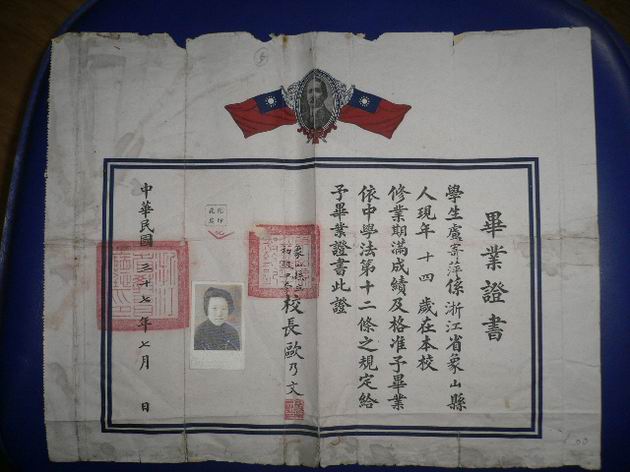 畢業證書
學生盧寄萍係浙江省象山縣
人現年十四歲在本校
修業期滿成績及格准予畢業
依中學法第十二條之規定給
予畢業證書此證
象山縣立
初級中學
校長歐乃文
中華民國三十七年七月 日